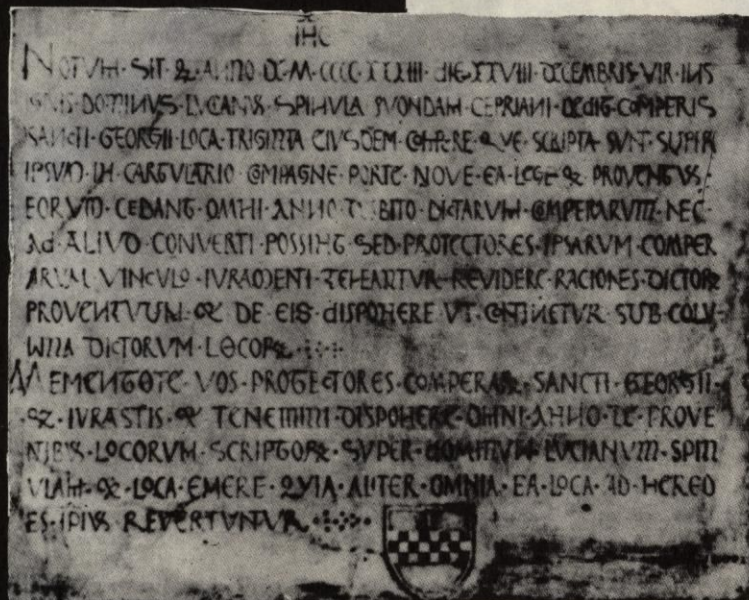 IHC
NOTVM · SIT · & · ANNO DE · M · CCCC · XXXIII · DIE · XXVIII · DECEMBRIS · VIR · INS
DOMINVS · LVCANVS · SPINVLA · QVONDAM · CEPRIANI · DEDIT · COMPERIS
SANCTI · GEORGII · LOCA · TRIGINTA · EIVSDEM · COMPERE · QVE · SCRIPTA · SVNT · SUPER
IPSVM · IN · CARTVLARIO · COMPAGNE · PORTE · NOVE · EA · LEGE · & · PROVENTVS ·
EORVM · CEDANT · OMNI · ANNO · DEBITO · DICTARVM · COMPERARVM · NEC ·
Ad · ALIVD · CONVERTI · POSSINT · SED · PROTECTORES · IPSARVM · COMPER
ARVM · VINCVLO · IVRAMENTI · TENEANTVR · REVIDERE · RACIONES · DICTOR
PROVENTVVM · & · DE · EIS · dISPONERE · VT · CONTINETVR · SUB · COLV
MNA DICTORVM · LOCOR
MEMENTOTE · VOS · PROTECTORES · COMPERAR · SANCTI · GEORGII ·
· & · IVRASTIS · & · TENEMINI · DISPONERE · OMNI · ANNO · DE · PROVE
NTIBVS · LOCORVM · SCRIPTOR · SVPER · DOMINVM · LUCIANVM · SPIN
VLAM · & · LOCA · EMERE · QVIA · ALITER · OMNIA · EA · LOCA · AD · HERED
ES · IPIVS REVERTVNTVR